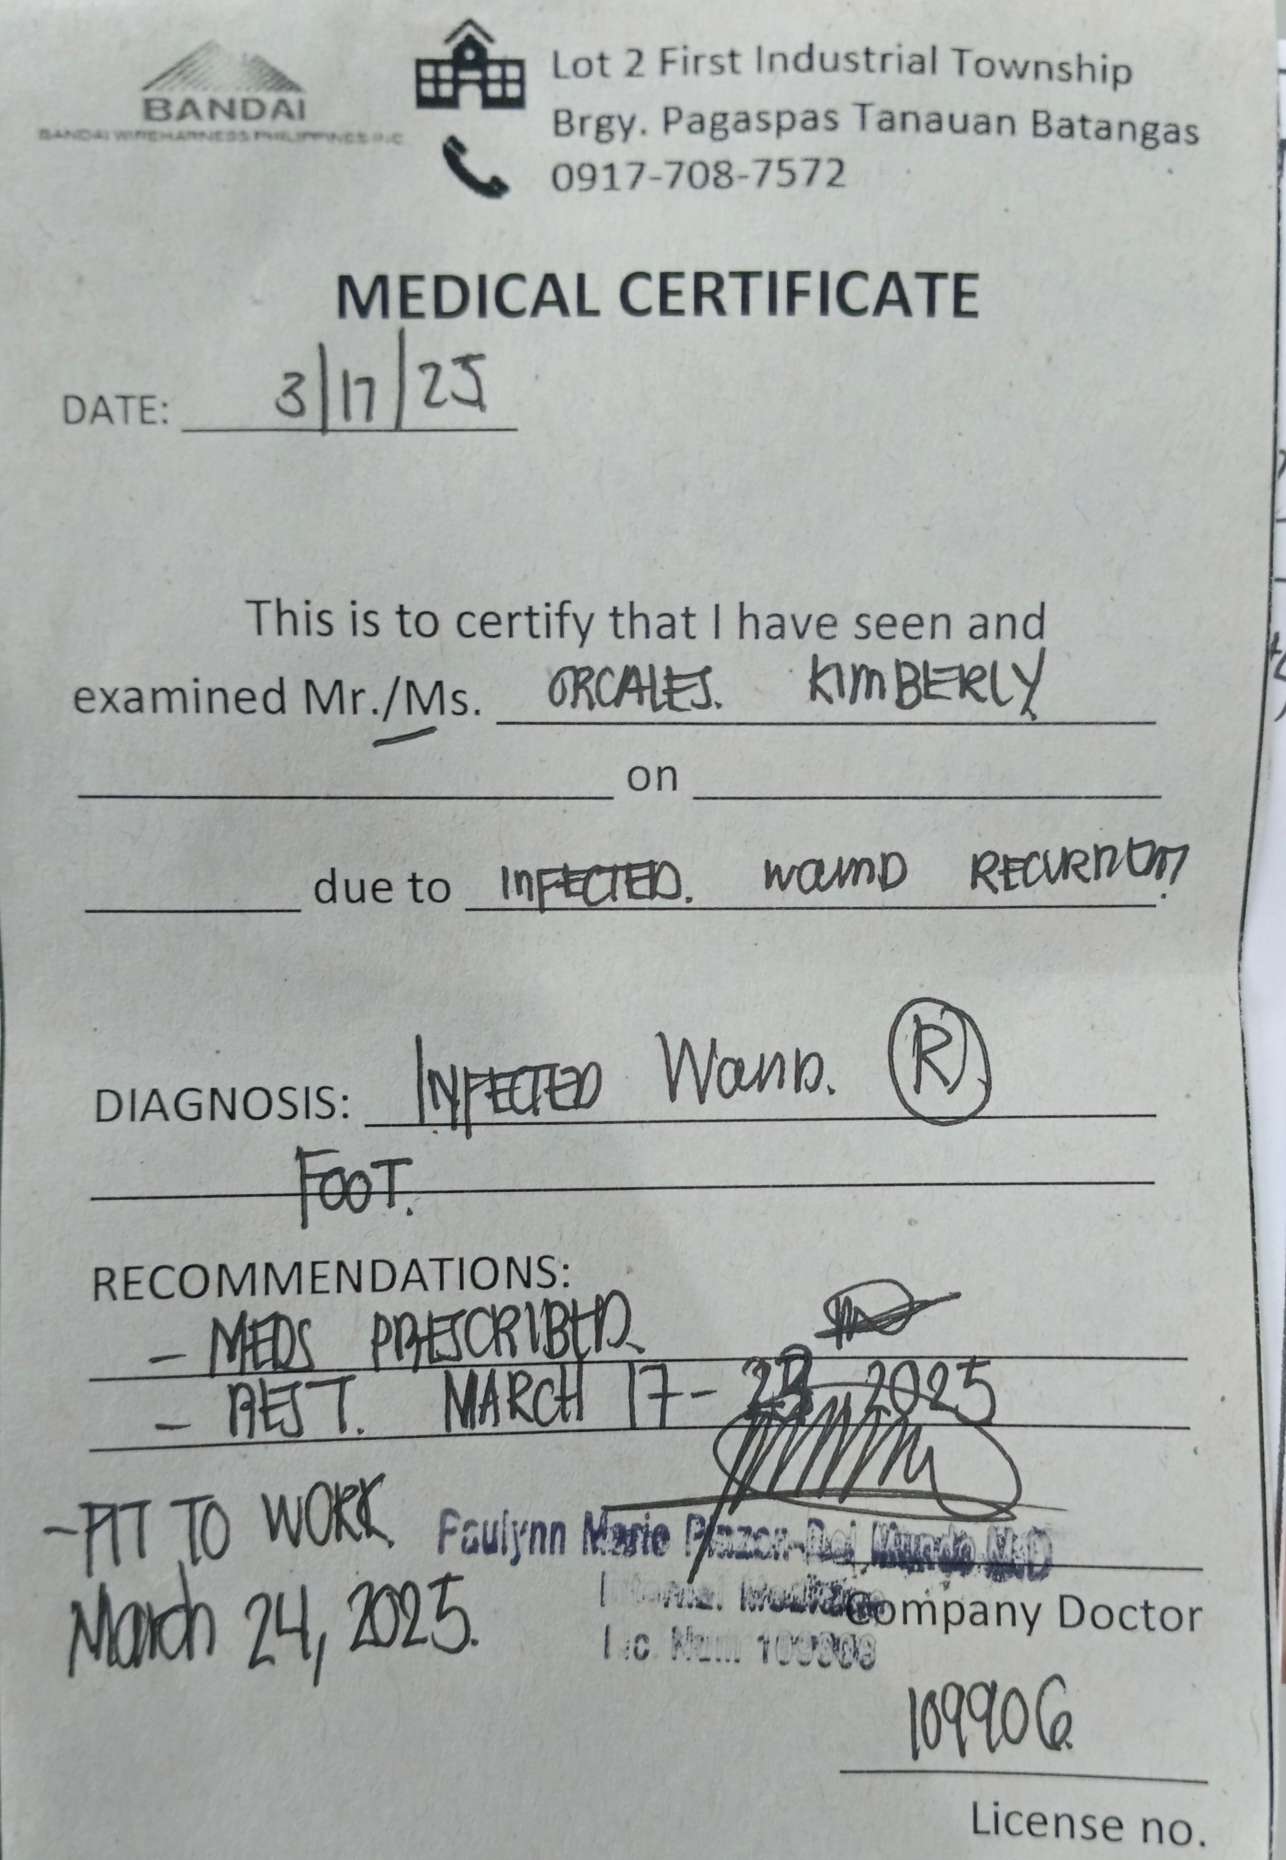 BANDAI
BANDAI WIREHARNESS PHILIPPINES INC
Lot 2 First Industrial Township
Brgy. Pagaspas Tanauan Batangas
0917-708-7572
MEDICAL CERTIFICATE
DATE: 3/17/25
This is to certify that I have seen and
examined Mr./Ms. ORCALES. KIMBERLY
on
due to INFECTED. WOUND
DIAGNOSIS: INFECTED WOUND. (R)
FOOT.
RECOMMENDATIONS:
- MEDS PRESCRIBED.
- REST. MARCH 17 - 23, 2025
- FIT TO WORK
March 24, 2025.
Paulynn Marie Plazon-Del Mundo M.D
Internal Medicine
Company Doctor
Lic. Num.
109906
License no.